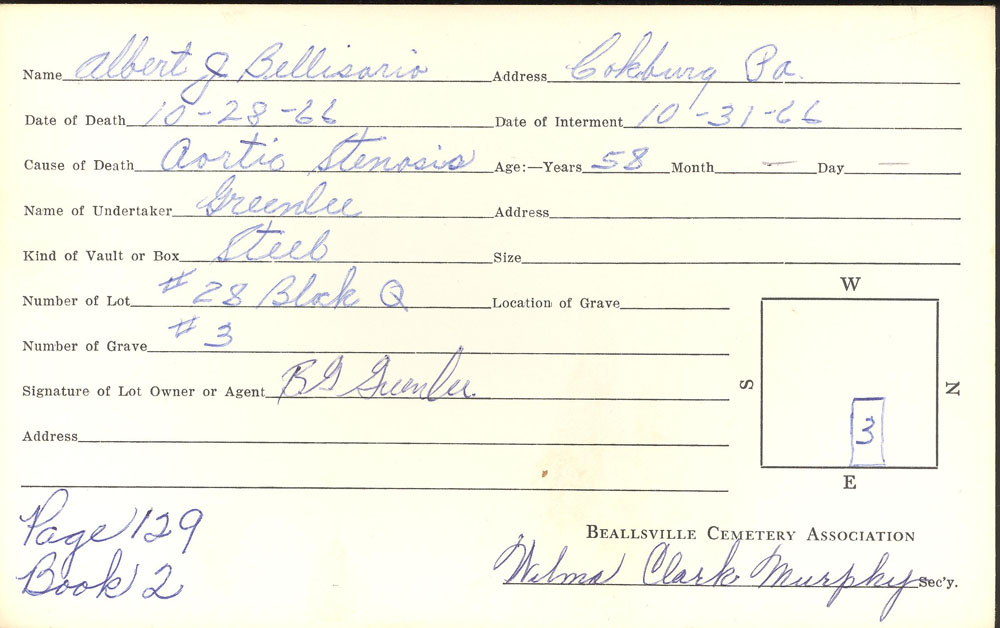 Name Albert J Bellisario Address Cokburg Pa.
Date of Death 10-28-66 Date of Interment 10-31-66
Cause of Death Aortic Stenosis Age:—Years 58 Month — Day —
Name of Undertaker Greenlee Address
Kind of Vault or Box Steel Size
Number of Lot #28 Block Q Location of Grave
Number of Grave #3
Signature of Lot Owner or Agent RG Greenlee
Address
W
S
N
3
E
Page 129
Book 2
BEALLSVILLE CEMETERY ASSOCIATION
Wilma Clark Murphy Sec'y.